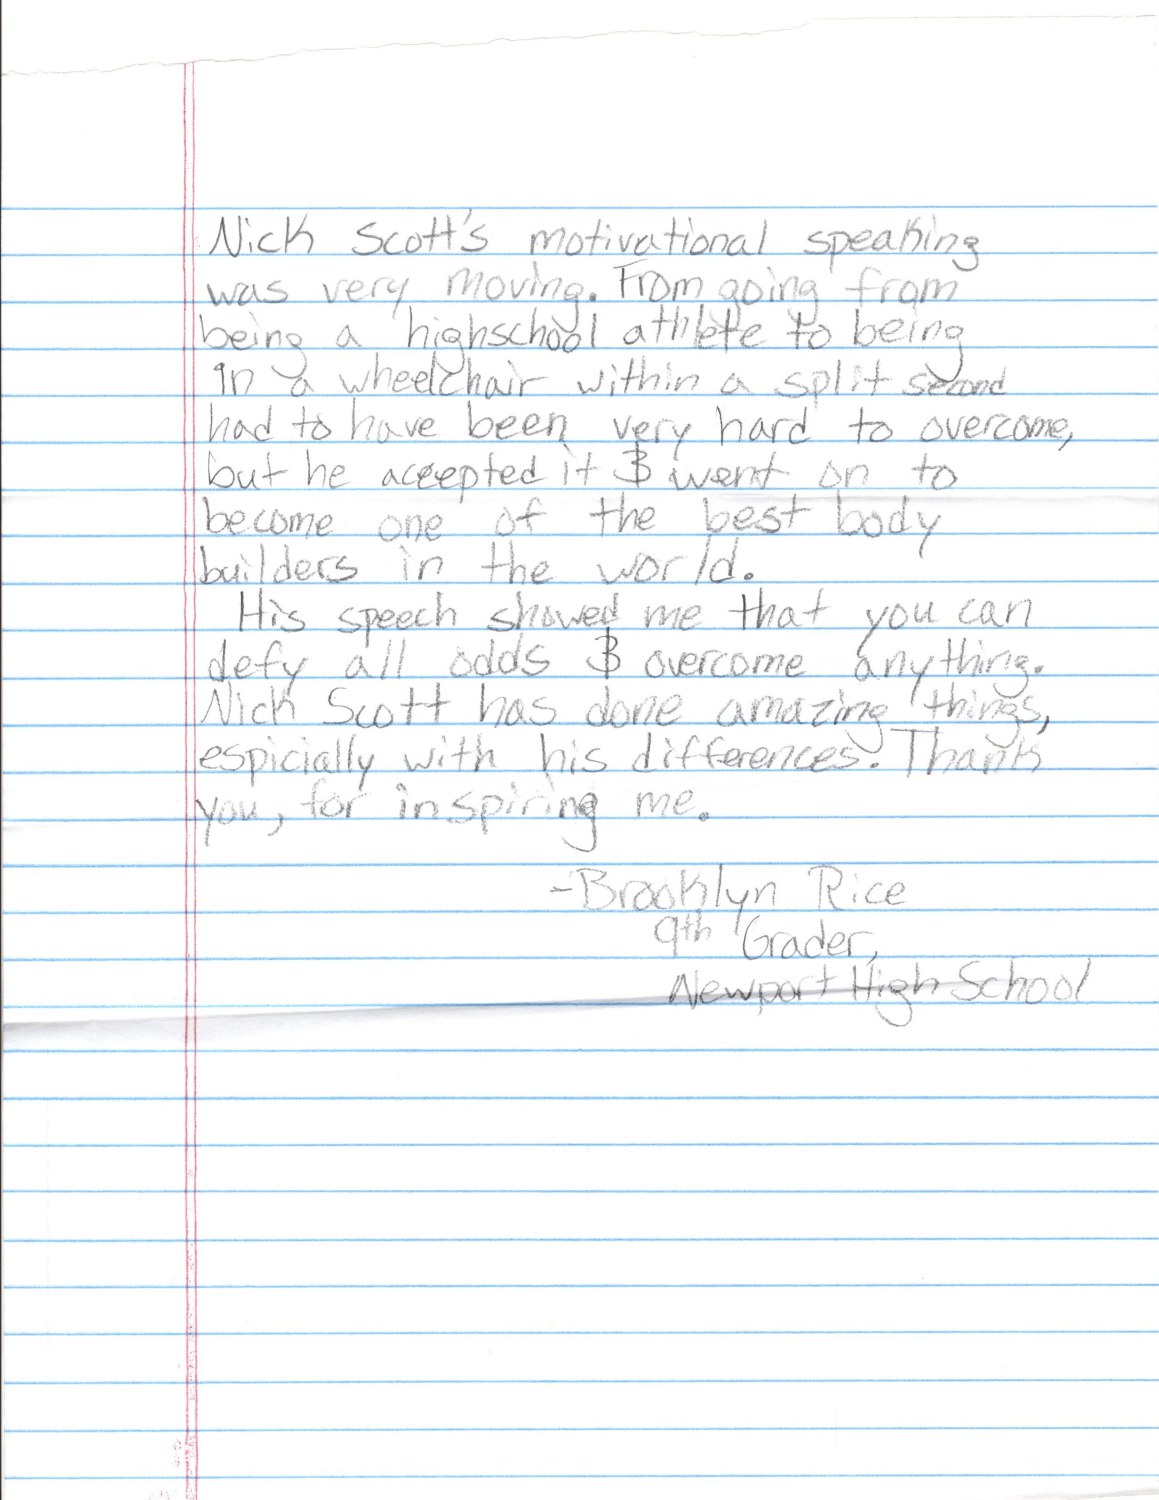 Nick Scott's motivational speaking
was very moving. From going from
being a highschool athlete to being
in a wheelchair within a split second
had to have been very hard to overcome,
but he accepted it & went on to
become one of the best body
builders in the world.
His speech showed me that you can
defy all odds & overcome anything.
Nick Scott has done amazing things,
espicially with his differences. Thank
you, for inspiring me.
-Brooklyn Rice
9th Grader,
Newport High School